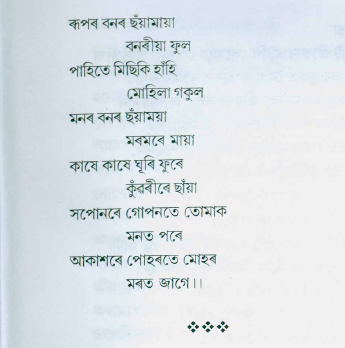 ৰূপৰ বনৰ ছঁয়ামায়া
বনৰীয়া ফুল
পাহিতে মিছিকি হাঁহি
মোহিলা গকুল
মনৰ বনৰ ছঁয়াময়া
মৰমৰে মায়া
কাষে কাষে ঘূৰি ফুৰে
কুঁৱৰীৰে ছাঁয়া
সপোনৰে গোপনতে তোমাক
মনত পৰে
আকাশৰে পোহৰতে মোহৰ
মৰত জাগে।।